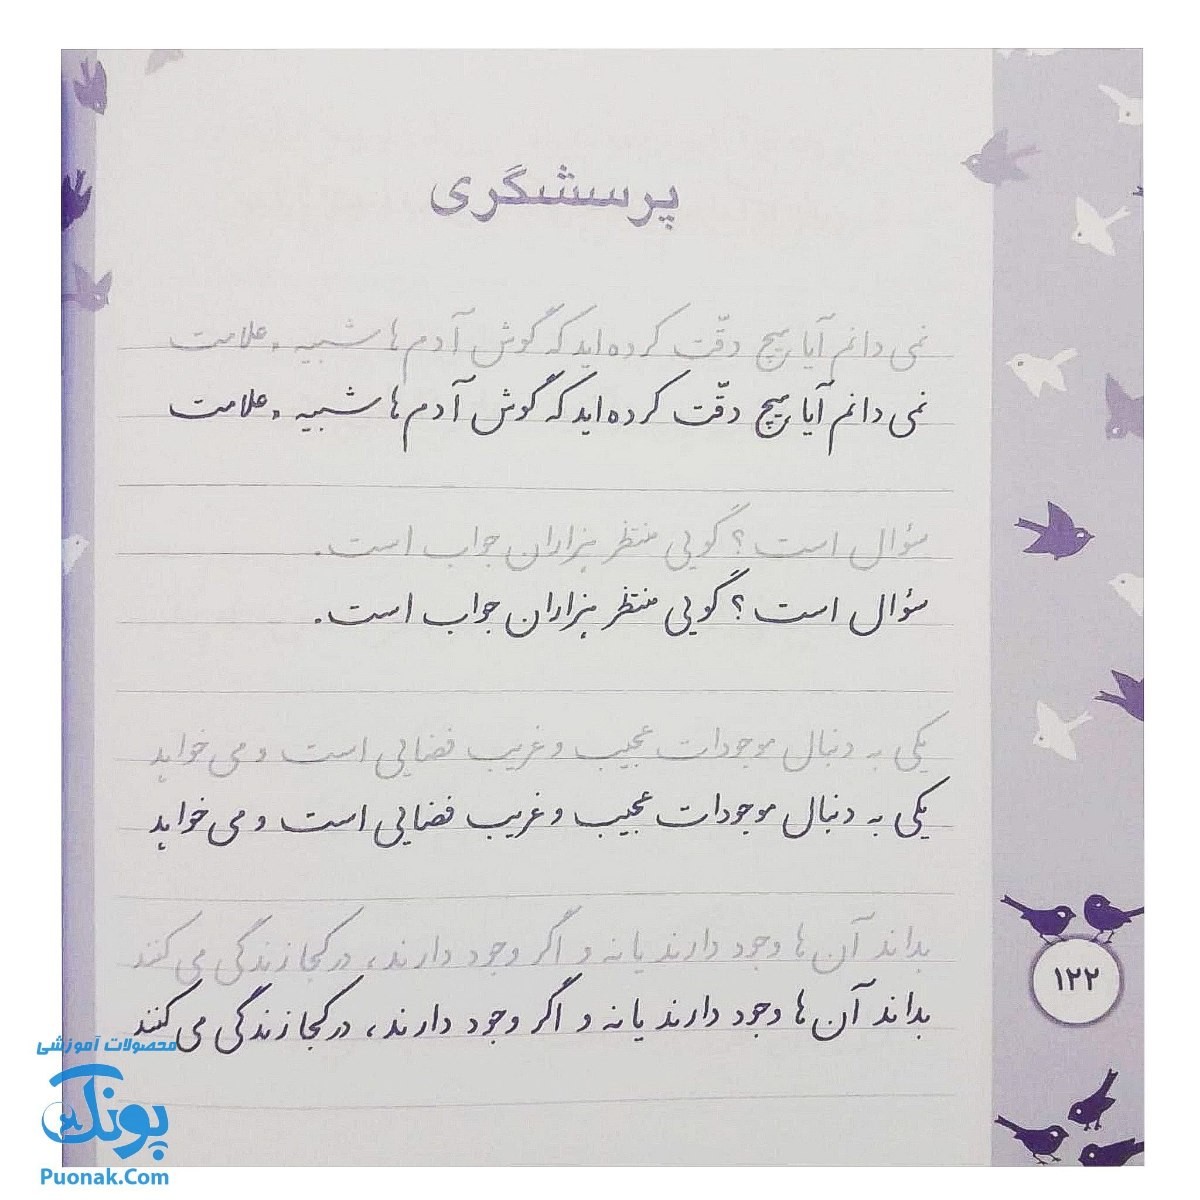 پرسشگری
نمی دانم آیا هیچ دقّت کرده اید که گوش آدم ها شبیه علامت
نمی دانم آیا هیچ دقّت کرده اید که گوش آدم ها شبیه علامت
سؤال است؟ گویی منتظر هزاران جواب است.
سؤال است؟ گویی منتظر هزاران جواب است.
یکی به دنبال موجودات عجیب و غریب فضایی است و می خواهد
یکی به دنبال موجودات عجیب و غریب فضایی است و می خواهد
بداند آن ها وجود دارند یا نه و اگر وجود دارند، در کجا زندگی می کنند
بداند آن ها وجود دارند یا نه و اگر وجود دارند، در کجا زندگی می کنند
۱۲۲
محصولات آموزشی
پونک
Puonak.Com